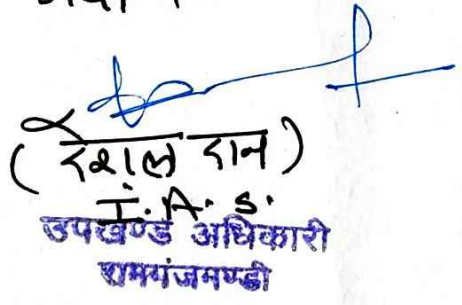 (रेशल दान)
I.A.S.
उपखण्ड अधिकारी
रामगंजमण्डी